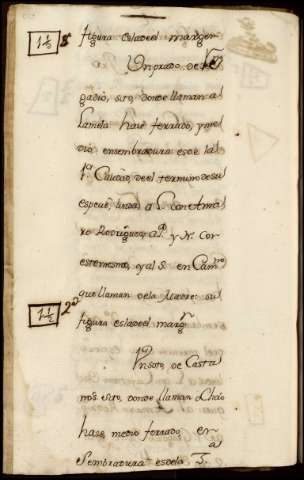 1 1/5
figura esladeel margen
Un prado, de se
gadio, sito, donde llaman a
Lamela haze ferrado, y me
dio ensembradura es de la
1ª Calidad, de el termino de su
especie, linda a L. con Ama
ro Rodriguez, a P. y N. Cor
res el mesmo, y al S. en Camno
que llaman de la su
1 1/2 2ª
figura esladeel margn
Un soto, de Casta
nos sito, donde llaman Chao
haze, medio ferrado, en
a
Sembradura es de la